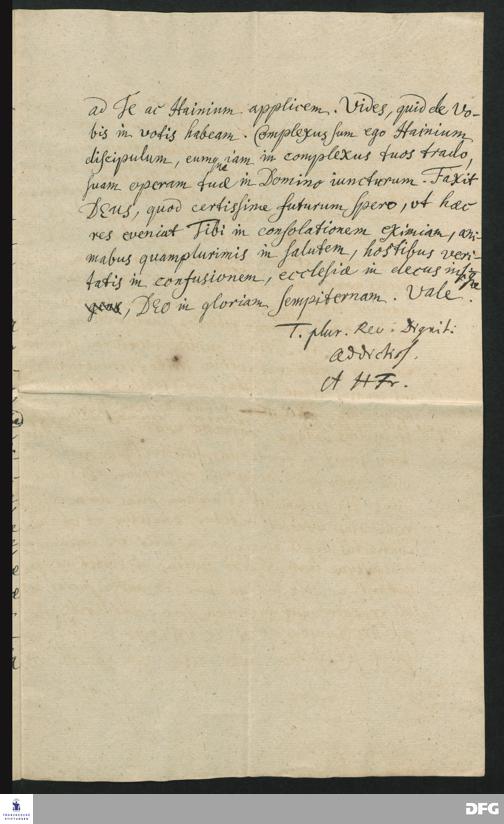 ad Te ac Hainium applicem. Vides, quid de Vo-
bis in votis habeam. Complexus sum ego Hainium
discipulum, eumque iam in complexus tuos trado,
suam operam tuæ in Domino iuncturum. Faxit
DEus, quod certissime futurum spero, vt hæc
res eveniat Tibi in consolationem eximiam, ani-
mabus quamplurimis in salutem, hostibus veri-
tatis in confusionem, ecclesiæ in decus
, DEO in gloriam sempiternam. Vale.
T. plur. Rev. Dignit:
addictiss.
A H Fr.
FRANCKESCHE STIFTUNGEN
DFG